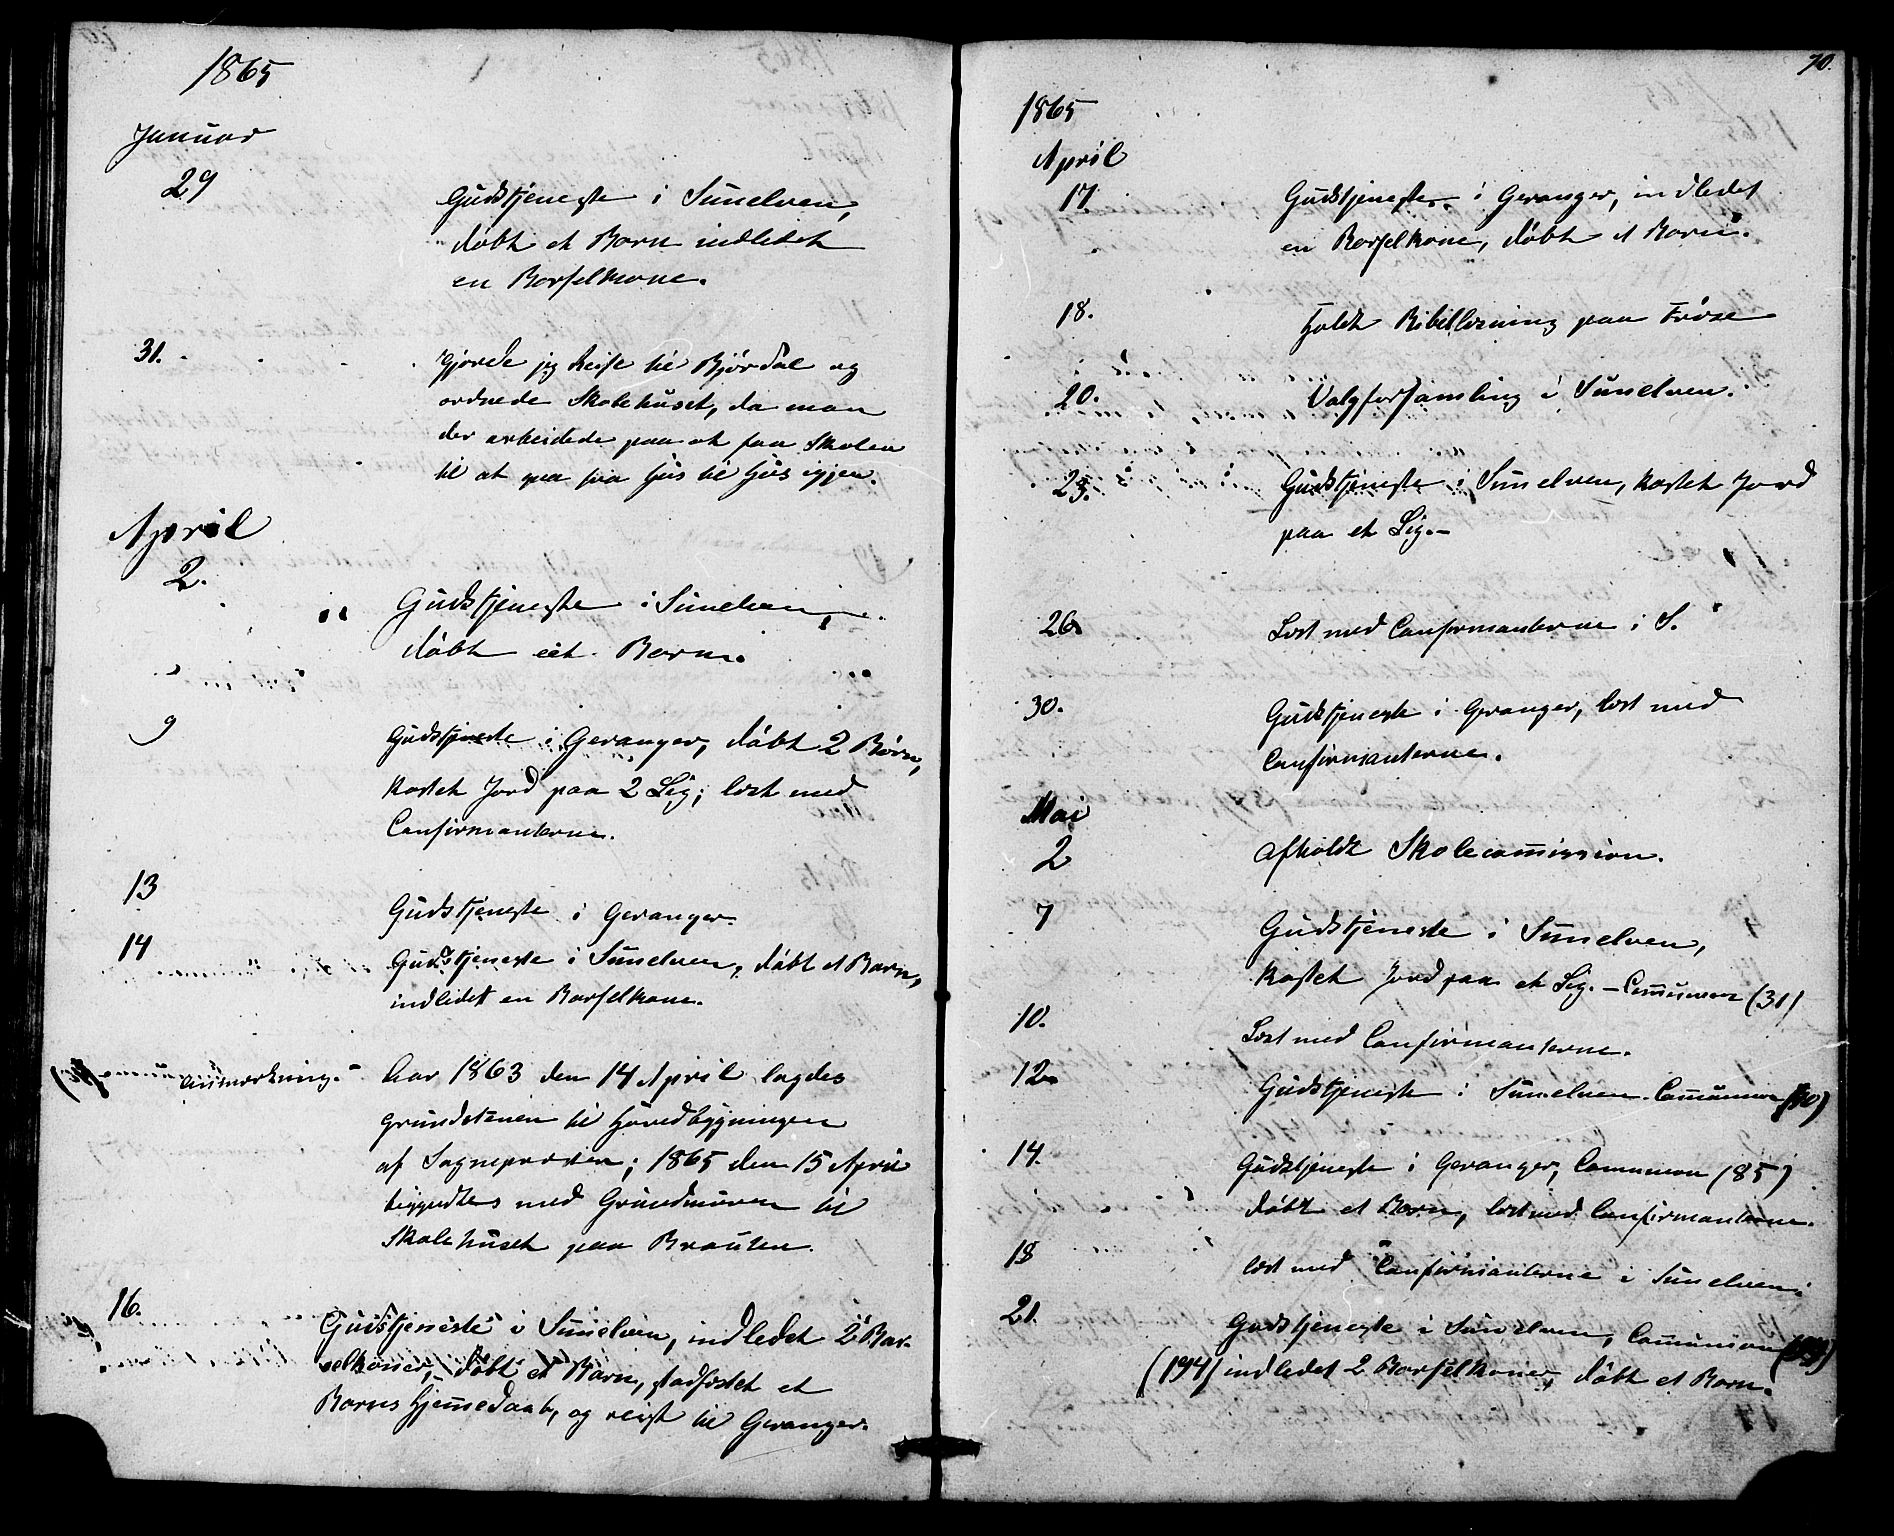 1865
Januar
29
Gudstjeneste i Sunelven,
døbt et Barn indledet
en Barselkone.
31.
Gjorde jeg Reise til Bjørdal og
ordnede Skolehuset, da man
der arbeidede paa at faa Skolen
til at gaa fra Hus til Hus igjen.
April
2.
Gudstjeneste i Sunelven,
døbt eet Barn.
9
Gudstjeneste i Geranger, døbt 2 Børn,
kastet Jord paa 2 Lig; læst med
Confirmanterne.
13
Gudstjeneste i Geranger.
14
Gudstjeneste i Sunelven, døbt et Barn,
indledet en Barselkone.
Anmærkning.
Aar 1863 den 14 April lagdes
grundstenen til Hovedbygningen
af Sognepresten; 1865 den 15 April
byggedtes med Grundmuren til
Skolehuset paa Brauten.
16.
Gudstjeneste i Sunelven, indledet 2 Bar-
selkoner, døbt et Barn, stadfæstet et
Barns Hjemmedaab, og reist til Geranger.
70.
1865
April
17.
Gudstjeneste i Geranger, indledet
en Barselkone, døbt et Barn.
18.
Holdt Bibellæsning paa
20.
Valgforsamling i Sunelven.
23.
Gudstjeneste i Sunelven, kastet Jord
paa et Lig.-
26
Læst med Confirmanterne i S.
30.
Gudstjeneste i Geranger, læst med
Confirmanterne.
Mai
2
Afholdt Skolecommission.
7
Gudstjeneste i Sunelven,
kastet Jord paa et Lig. - Communion (31)
10.
Læst med Confirmanterne.
12.
Gudstjeneste i Sunelven. Communion
14.
Gudstjeneste i Geranger, Communion (85)
døbt et Barn, læst med Confirmanterne.
18
læst med Confirmanterne i Sunelven.
21.
Gudstjeneste i Sunelven, Communion
(194) indledet 2 Barselkoner, døbt et Barn.